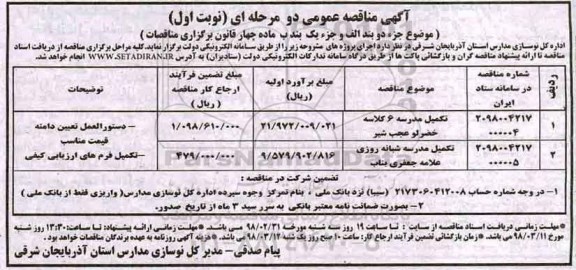 آگهی مناقصه عمومی دو مرحله ای (نوبت اول)
( موضوع جزء دو بند الف و جزء یک بند ب ماده چهار قانون برگزاری مناقصات )
اداره کل نوسازی مدارس استان آذربایجان شرقی در نظر دارد اجرای پروژه های مشروحه زیر را از طریق سامانه الکترونیکی دولت برگزار نماید. کلیه مراحل برگزاری مناقصه از دریافت اسناد
مناقصه تا ارائه پیشنهاد مناقصه گران و بازگشائی پاکت ها از طریق درگاه سامانه تدارکات الکترونیکی دولت (ستادیران) به آدرس WWW.SETADIRAN.IR انجام خواهد شد.
ردیف | شماره مناقصه در سامانه ستاد ایران | موضوع مناقصه | مبلغ برآورد اولیه (ریال) | مبلغ تضمین فرآیند ارجاع کار مناقصه ( ریال) | توضیحات
۱ | ۲۰۹۸۰۰۴۲۱۷۰۰۰۰۰۴ | تکمیل مدرسه ۶ کلاسه خضرلو عجب شیر | ۲۱/۹۷۲/۰۰۹/۰۲۱ | ۱/۰۹۸/۶۱۰/۰۰۰ | – دستورالعمل تعیین دامنه قیمت مناسب
۲ | ۲۰۹۸۰۰۴۲۱۷۰۰۰۰۰۵ | تکمیل مدرسه شبانه روزی علامه جعفری بناب | ۹/۵۷۹/۹۰۲/۸۱۶ | ۴۷۹/۰۰۰/۰۰۰ | – تکمیل فرم های ارزیابی کیفی
تضمین شرکت در مناقصه :
۱– در وجه شماره حساب ۲۱۷۳۰۶۰۴۱۲۰۰۸ (سیبا) نزد بانک ملی ، بنام تمرکز وجوه سپرده اداره کل نوسازی مدارس( واریزی فقط از بانک ملی )
۲– بصورت ضمانت نامه معتبر بانکی به سر رسید ۳ ماه از تاریخ صدور.
*مهلت زمانی دریافت اسناد مناقصه از سایت : تا ساعت ۱۹ روز سه شنبه مورخه ۹۸/۰۲/۳۱ می باشد. *مهلت زمانی ارائه پیشنهاد: تا ساعت ۱۳:۳۰ روز شنبه
مورخ ۹۸/۰۳/۱۱ می باشد *زمان بازگشائی تضمین فرآیند ارجاع کار: ساعت ۱۰ صبح روز یک شنبه ۹۸/۰۳/۱۲ می باشد * هزینه آگهی روزنامه به عهده برندگان مناقصات خواهد بود.
پیام صدقی – مدیر کل نوسازی مدارس استان آذربایجان شرقی